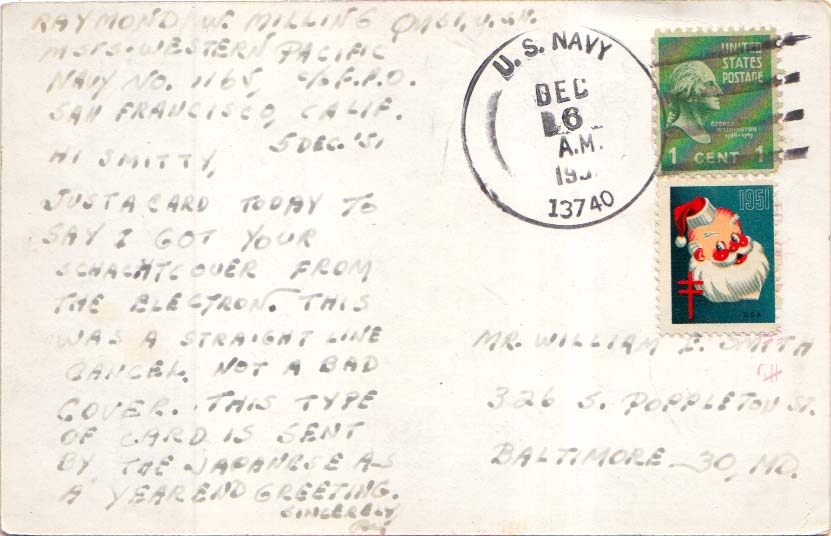 RAYMOND W. MILLING
MSTS-WESTERN PACIFIC
NAVY NO. 1165, C/O F.P.O.
SAN FRANCISCO, CALIF.
5 DEC. '51
HI SMITTY,
JUST A CARD TODAY TO
SAY I GOT YOUR
SCHACHT COVER FROM
THE ELECTRON. THIS
WAS A STRAIGHT LINE
CANCEL. NOT A BAD
COVER. THIS TYPE
OF CARD IS SENT
BY THE JAPANESE AS
A YEAR END GREETING.
SINCERELY,
Ray
U. S. NAVY
DEC
16
A.M.
13740
UNITED
STATES
POSTAGE
GEORGE
WASHINGTON
1789-1797
1 CENT 1
1951
USA
MR. WILLIAM E. SMITH
326 S. POPPLETON ST.
BALTIMORE-30, MD.